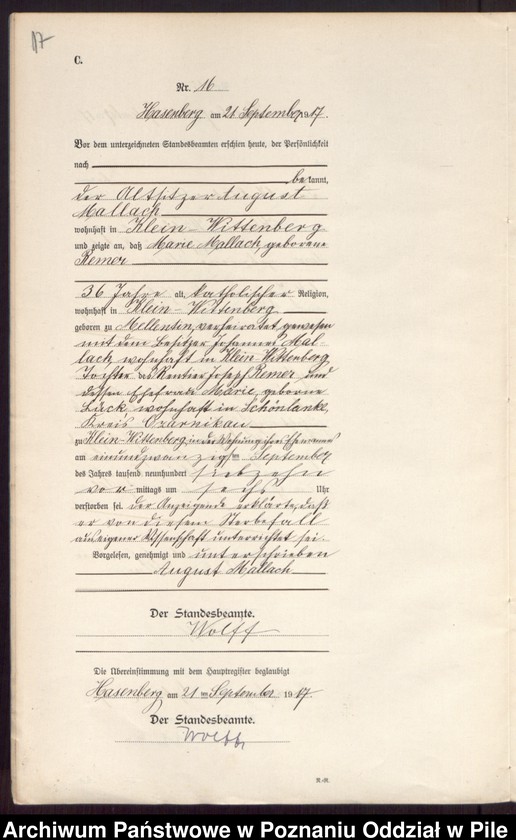 17
C.
Nr. 16
Hasenberg am 21 September 1917.
Vor dem unterzeichneten Standesbeamten erschien heute, der Persönlichkeit
nach
bekannt,
der Altsitzer August
Mallach
wohnhaft in Klein-Wittenberg
und zeigte an, daß Marie Mallach, geborene
Remer
36 Jahre alt, katholischer Religion,
wohnhaft in Klein-Wittenberg
geboren zu Mellentin, verheiratet gewesen
mit dem Besitzer Johannes Mal-
lach, wohnhaft in Klein-Wittenberg,
Tochter des Rentier Josef Remer und
dessen Ehefrau Marie, geborne
Luck, wohnhaft in Schönlanke,
Kreis Czarnikau
zu Klein-Wittenberg, in der Wohnung ihres Ehemannes
am einundzwanzigsten September
des Jahres tausend neunhundert siebzehn
vor mittags um sechs Uhr
verstorben sei. der Anzeigende erklärte, daß
er von diesem Sterbefall
aus eigener Wissenschaft unterrichtet sei.
Vorgelesen, genehmigt und unterschrieben
August Mallach
Der Standesbeamte.
Wolff
Die Übereinstimmung mit dem Hauptregister beglaubigt
Hasenberg am 21 ten September 1917.
Der Standesbeamte.
Wolff
Archiwum Państwowe w Poznaniu Oddział w Pile